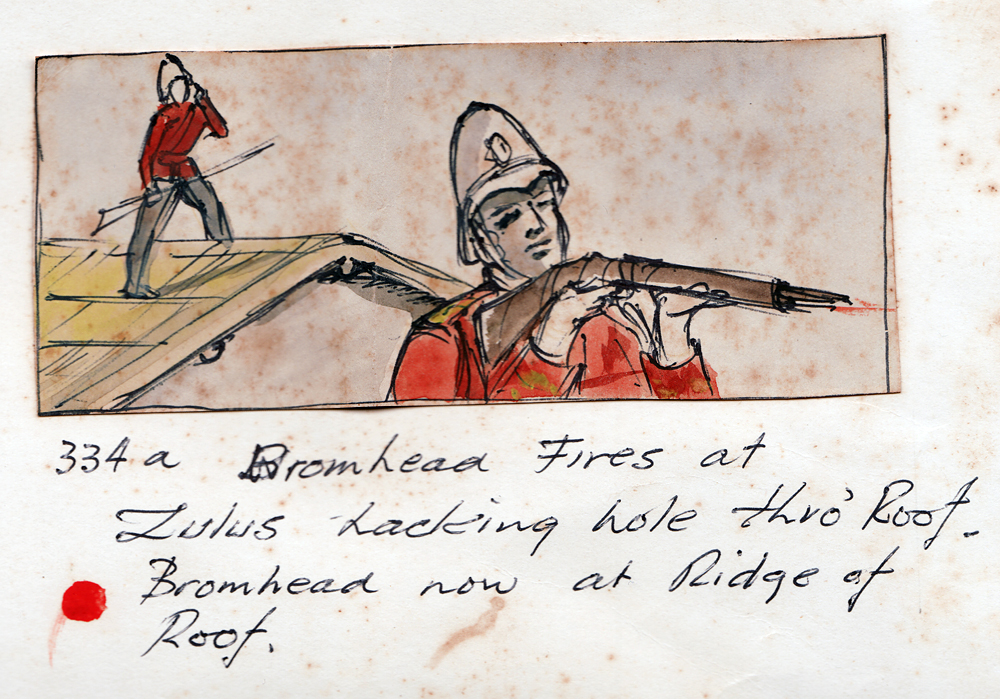 334a Bromhead Fires at
Zulus hacking hole thro' Roof.
Bromhead now at Ridge of
Roof.